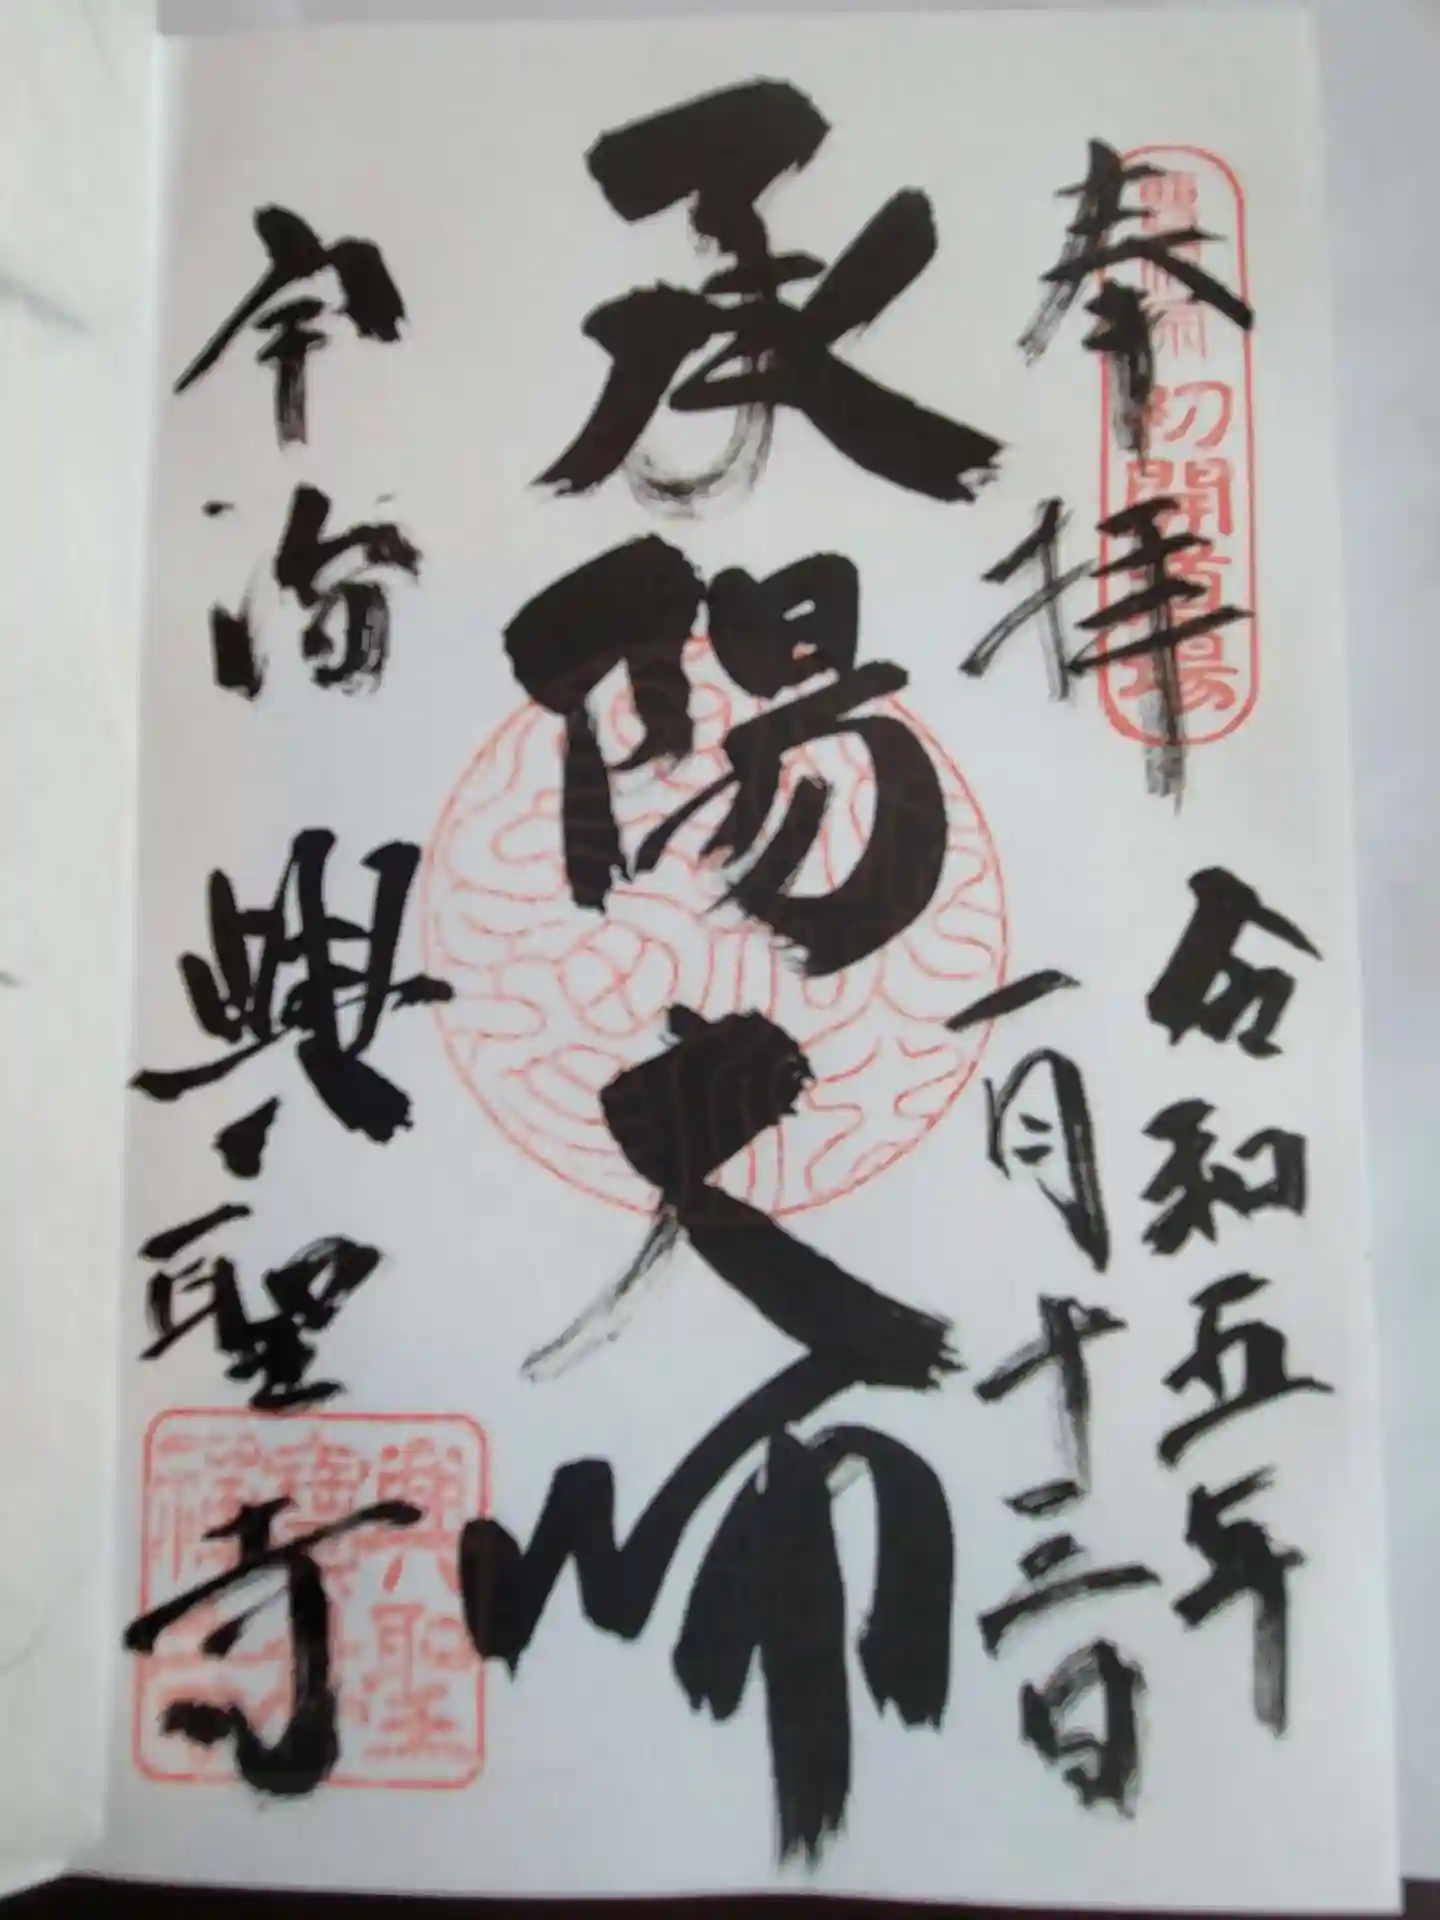 奉拝
令和五年
一月十三日
承陽大師
宇治
興聖寺
初開道場